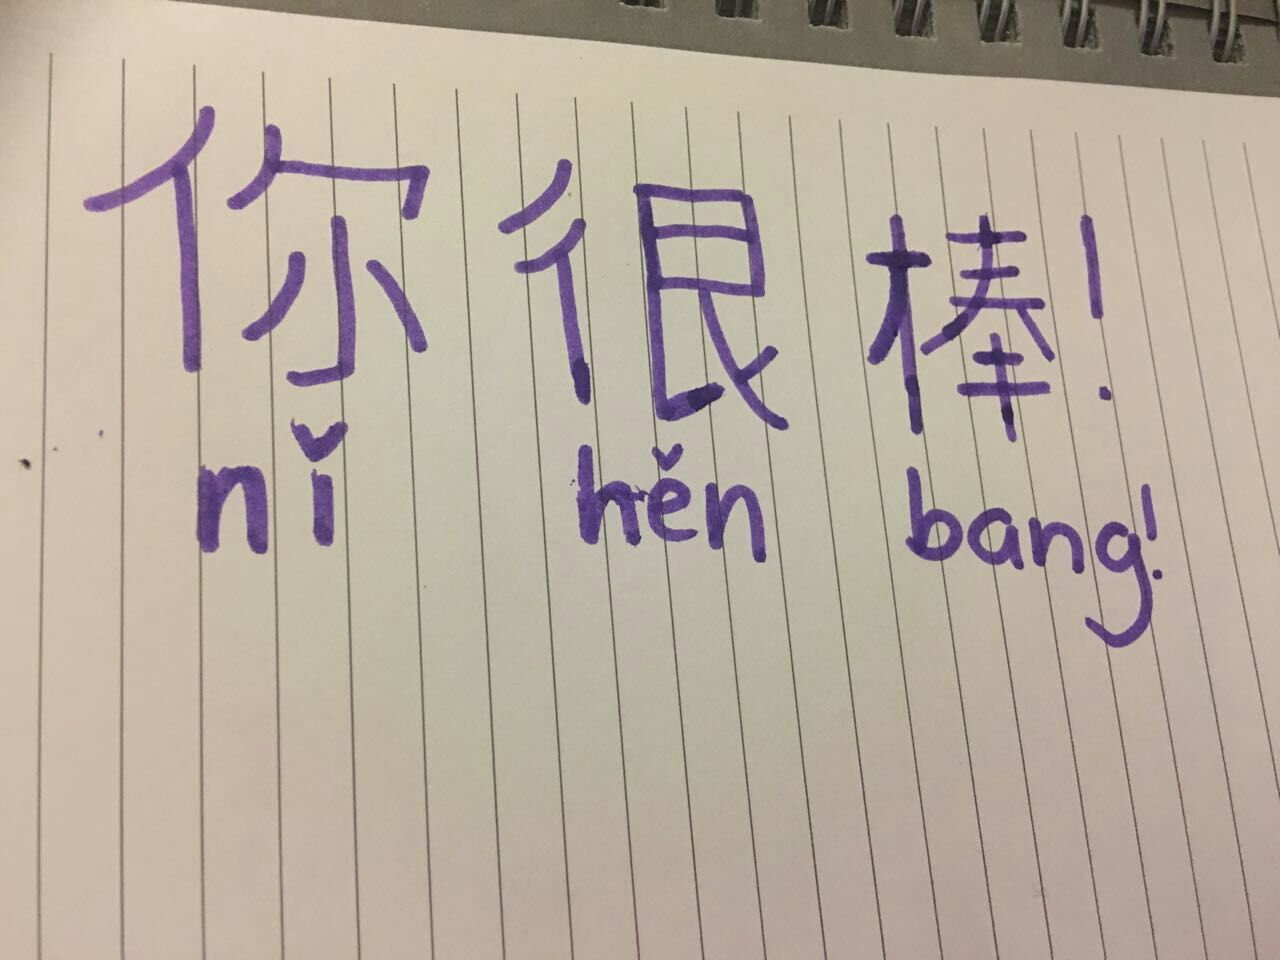 你很棒!
nǐ hěn bang!